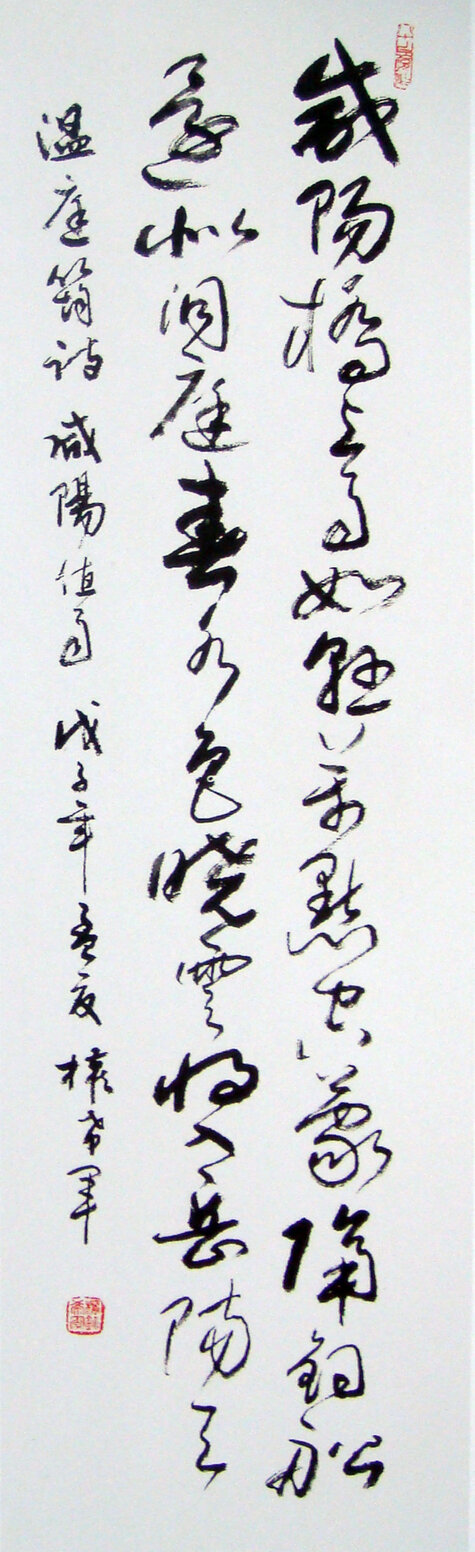 咸陽橋上雨如懸萬點空蒙隔釣船
還似洞庭春水色曉雲將入岳陽天
温庭筠詩 咸陽值雨 戊子年孟夏 權希軍